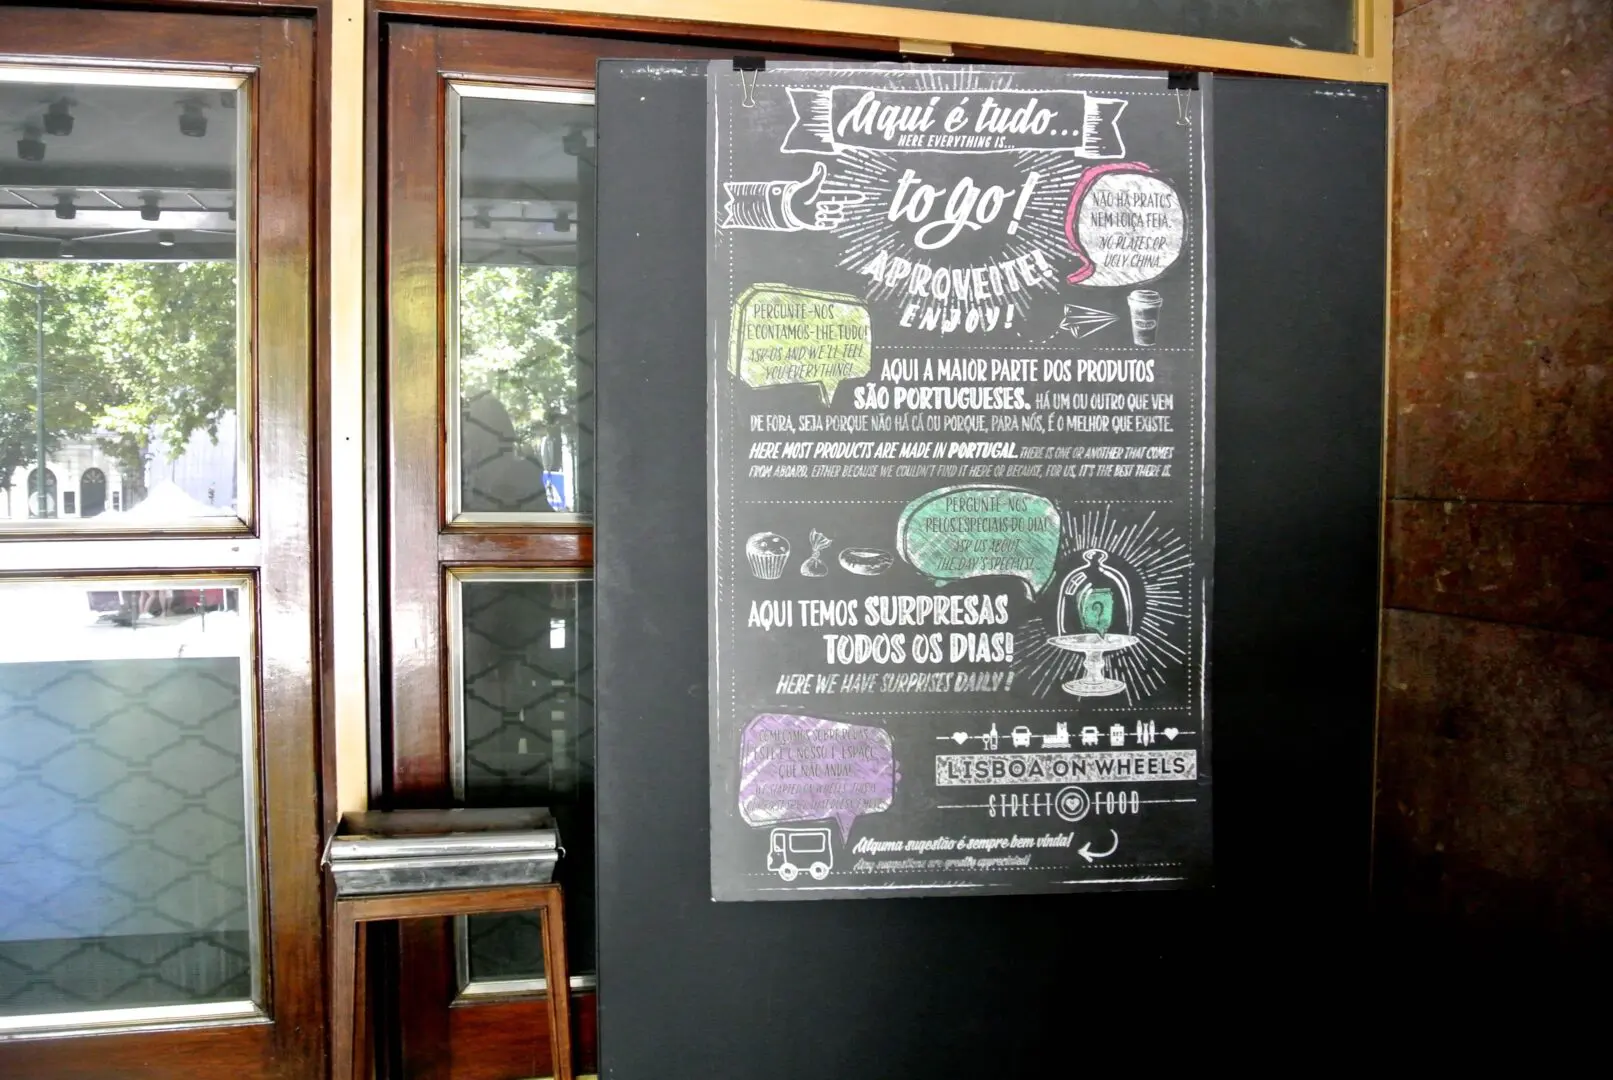 Aqui é tudo...
HERE EVERYTHING IS...
to go!
NÃO HÁ PRATOS
NEM LOIÇA FEIA.
NO PLATES OR
UGLY CHINA.
APROVEITE!
ENJOY!
PERGUNTE-NOS
E CONTAMOS-LHE TUDO!
ASK US AND WE'LL TELL
YOU EVERYTHING!
AQUI A MAIOR PARTE DOS PRODUTOS
SÃO PORTUGUESES. HÁ UM OU OUTRO QUE VEM
DE FORA, SEJA PORQUE NÃO HÁ CÁ OU PORQUE, PARA NÓS, É O MELHOR QUE EXISTE.
HERE MOST PRODUCTS ARE MADE IN PORTUGAL. THERE IS ONE OR ANOTHER THAT COMES
FROM ABOARD, EITHER BECAUSE WE COULDN'T FIND IT HERE OR BECAUSE, FOR US, IT'S THE BEST THERE IS.
PERGUNTE-NOS
PELOS ESPECIAIS DO DIA!
ASK US ABOUT
THE DAY'S SPECIALS!
?
AQUI TEMOS SURPRESAS
TODOS OS DIAS!
HERE WE HAVE SURPRISES DAILY!
COMEÇAMOS SOBRE RODAS,
ESTE É O NOSSO 1º ESPAÇO
QUE NÃO ANDA!
WE STARTED ON WHEELS, THIS IS
LISBOA ON WHEELS
STREET FOOD
Alguma sugestão é sempre bem vinda!
Any suggestions are greatly appreciated!